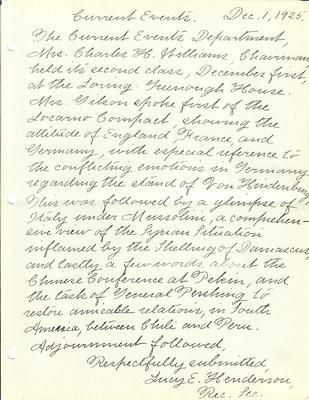 Current Events. Dec. 1, 1925.
The Current Events Department,
Mrs. Charles H. Williams, Chairman,
held its second class, December first,
at the Loring-Greenough House.
Mrs. Gilson spoke first of the
Locarno Compact, showing the
attitude of England, France, and
Germany, with especial reference to
the conflicting emotions in Germany
regarding the stand of Von Hindenburg,
This was followed by a glimpse of
Italy under Mussolini, a comprehen-
sive view of the Syrian Situation
inflamed by the Shelling of Damascus,
and lastly a few words about the
Chinese Conference at Pekin, and
the task of General Pershing to
restore amicable relations, in South
America, between Chili and Peru.
Adjournment followed,
Respectfully submitted,
Lucy E. Henderson,
Rec. Sec.